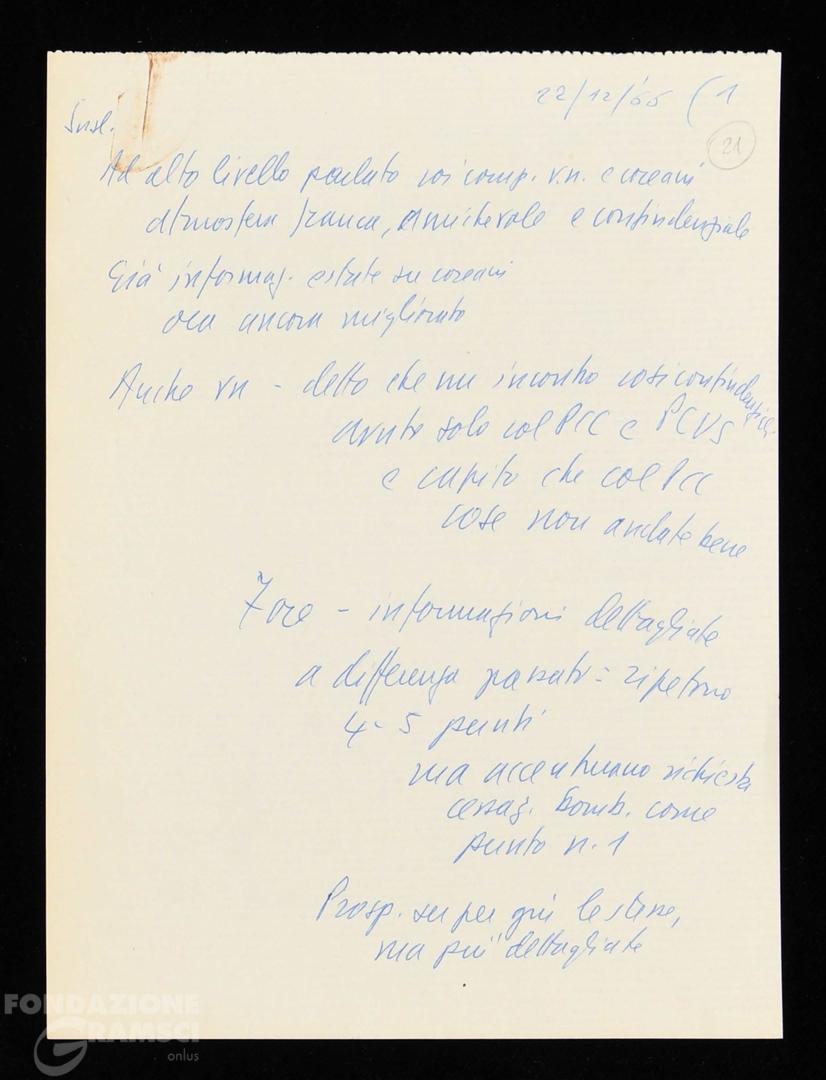 22/12/'65 (1
21
Susl.
Ad alto livello parlato coi comp. v.n. e coreani
atmosfera franca, amichevole e confindenziale
Già informaz. estate su coreani
ora ancora migliorato
Anche vn - detto che un incontro così confindenziale
avuto solo col PCC e PCUS
e capito che col PCC
cose non andate bene
7 ore - informazioni dettagliate
a differenza passato: ripetono
4-5 punti
ma accentuano richiesta
cessaz. bomb. come
punto n. 1
Prosp. su per giù le stesse,
ma più dettagliate
FONDAZIONE
GRAMSCI
onlus